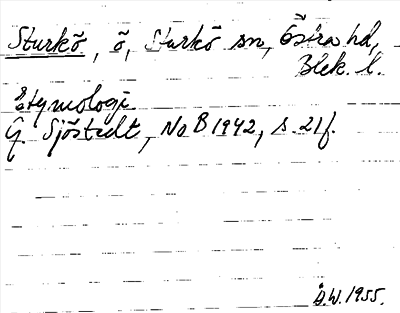 Sturkö, ö, Sturkö sn, Östra hd,
Blek. l.
Etymologi
G. Sjöstedt, NoB 1942, s. 21f.
O.W. 1955.